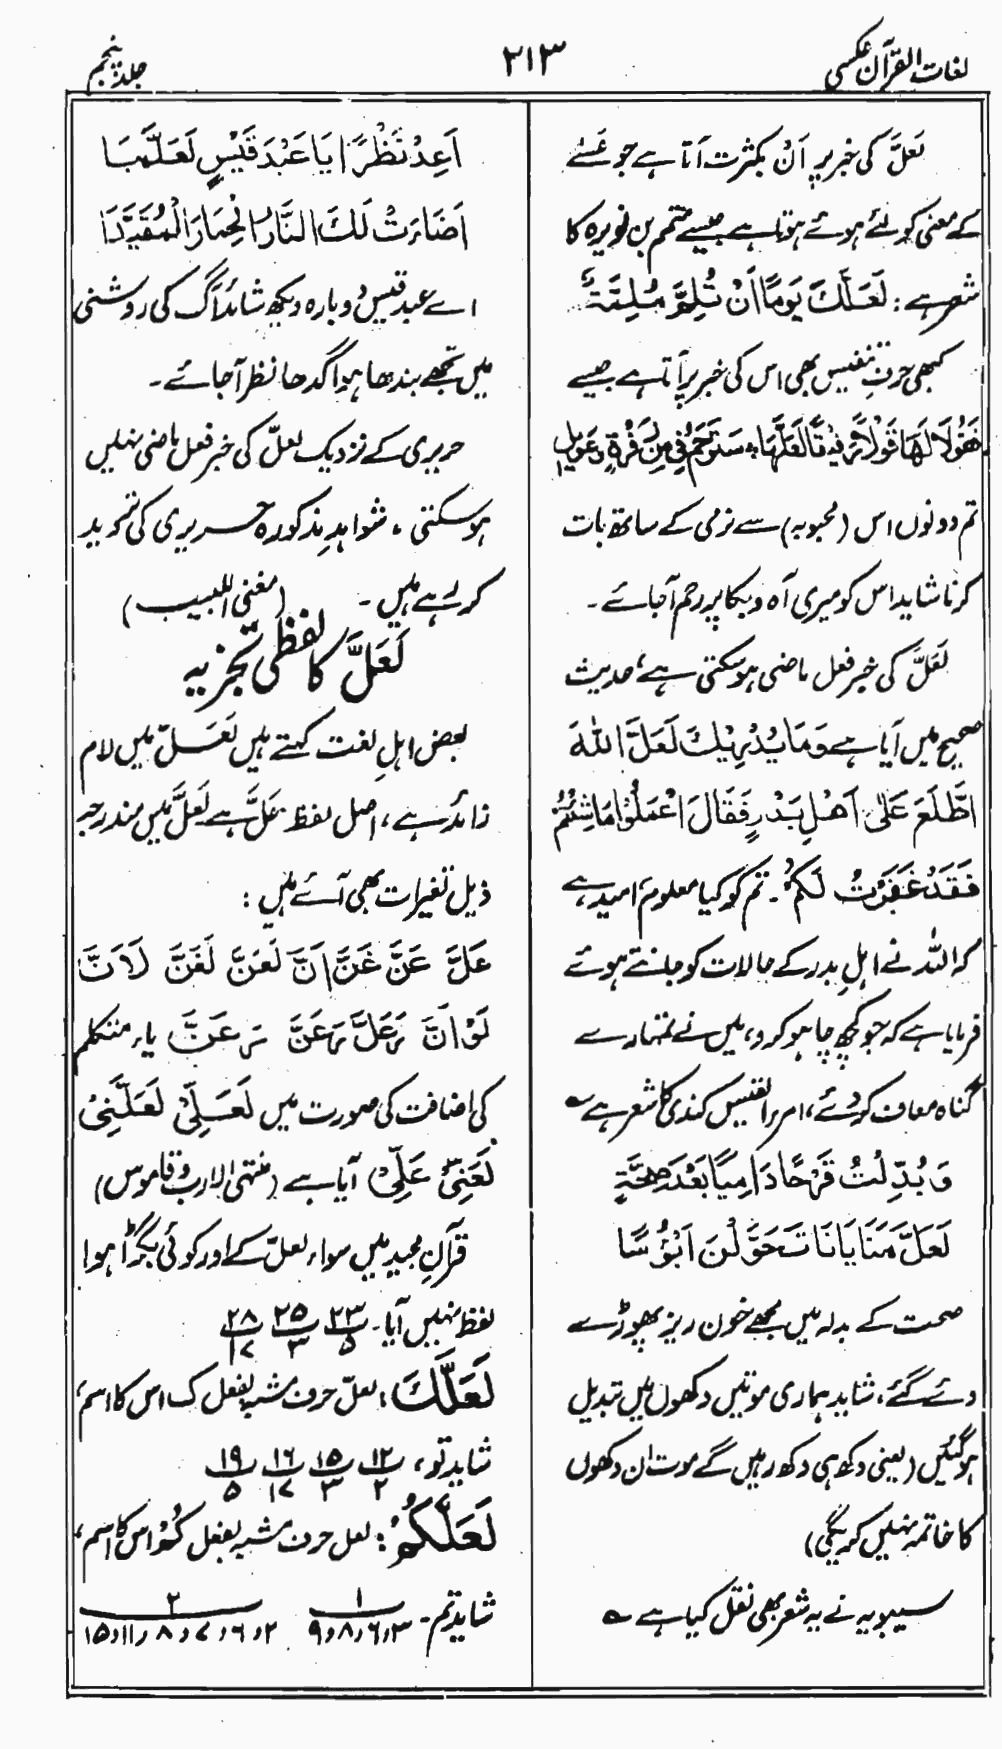 لغات القرآن عکسی
۲۱۳
جلد پنجم
لَعَلَّ کی خبر پر اَنْ بکثرت آتا ہے جو عَسٰے
کے معنی کو لئے ہوئے ہوتا ہے جیسے متمم بن نویرہ کا
شعر ہے : لَعَلَّكَ يَوْمًا اَنْ تُلِمَّ مُلِمَّةٌ
کبھی حرفِ تنفیس بھی اس کی خبر پر آتا ہے جیسے
فَقُوْلَا لَهَا قَوْلًا رَّفِيْقًا لَعَلَّهَا ، سَتَرْحَمُنِيْ مِنْ زَفْرَةٍ وَّعَوِيْلِ
تم دونوں اس (محبوبہ) سے نرمی کے ساتھ بات
کرنا شاید اس کو میری آہ و بکا پر رحم آجائے ۔
لَعَلَّ کی خبر فعل ماضی ہوسکتی ہے، حدیث
صحیح میں آیا ہے وَمَا يُدْرِيْكَ لَعَلَّ اللّٰهَ
اطَّلَعَ عَلٰى اَهْلِ بَدْرٍ فَقَالَ اعْمَلُوْا مَا شِئْتُمْ
فَقَدْ غَفَرْتُ لَكُمْ ۔ تم کو کیا معلوم، امید ہے
کہ اللہ نے اہلِ بدر کے حالات کو جانتے ہوئے
فرمایا ہے کہ جو کچھ چاہو کرو، میں نے تمہارے
گناہ معاف کردئے، امرء القیس کندی کا شعر ہے ؎
وَبُدِّلْتُ قَرْحًا دَامِيًا بَعْدَ صِحَّةٍ
لَعَلَّ مَنَايَانَا تَحَوَّلْنَ اَبْؤُسًا
صحت کے بدلہ میں مجھے خون ریز پھوڑے
دئے گئے، شاید ہماری موتیں دکھوں میں تبدیل
ہوگئیں (یعنی دکھ ہی دکھ رہیں گے موت ان دکھوں
کا خاتمہ نہیں کریگی)
سیبویہ نے یہ شعر بھی نقل کیا ہے ؎
اَعِدْ نَظْرًا يَا عَبْدَ قَيْسٍ لَعَلَّمَا
اَضَاءَتْ لَكَ النَّارُ الْحِمَارَ الْمُقَيَّدَا
اے عبد قیس دوبارہ دیکھ شائد آگ کی روشنی
میں تجھے بندھا ہوا گدھا نظر آجائے ۔
حریری کے نزدیک لعلّ کی خبر فعل ماضی نہیں
ہوسکتی ، شواہدِ مذکورہ حریری کی تردید
کر رہے ہیں ۔ (مغنی اللبیب)
لَعَلَّ کا لفظی تجزیہ
بعض اہلِ لغت کہتے ہیں لَعَلَّ میں لام
زائد ہے ، اصل لفظ عَلَّ ہے لَعَلَّ میں مندرجہ
ذیل تغیرات بھی آئے ہیں :
عَلَّ عَنَّ غَنَّ اَنَّ لَعَنَّ لَغَنَّ لَاَنَّ
لَوْاَنَّ رَعَلَّ رَعَنَّ رَغَنَّ یاء متکلم
کی اضافت کی صورت میں لَعَلِّيْ لَعَلَّنِيْ
لَعَنِّيْ عَلِّيْ آیا ہے (منتہی الارب و قاموس)
قرآنِ مجید میں سواء لعلّ کے اور کوئی بگڑا ہوا
لفظ نہیں آیا ۔ ۲۳/۵ ۲۵/۳ ۲۸/۱۷
لَعَلَّكَ ، لعلّ حرف مشبہ بفعل ک اس کا اسم ،
شاید تو ، ۱۲/۲ ۱۵/۳ ۱۶/۱۷ ۱۹/۵
لَعَلَّكُمْ : لعل حرف مشبہ بفعل كُمْ اس کا اسم ،
شاید تم ۔ ۱/۳،۶،۸،۹ ۲/۲،۶،۷،۸،۱۱،۱۵